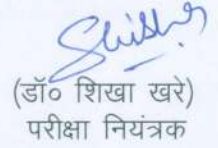 (डॉ० शिखा खरे)
परीक्षा नियंत्रक